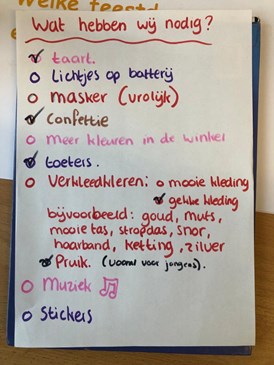 Welke feest
Wat hebben wij nodig?
taart.
Lichtjes op batterij
masker (vrolijk)
Confettie
meer kleuren in de winkel
toeters.
Verkleedkleren: o mooie kleding
gekke kleding
bijvoorbeeld: goud, muts,
mooie tas, stropdas, snor,
haarband, ketting, zilver
Pruik. (vooral voor jongens).
Muziek
Stickers